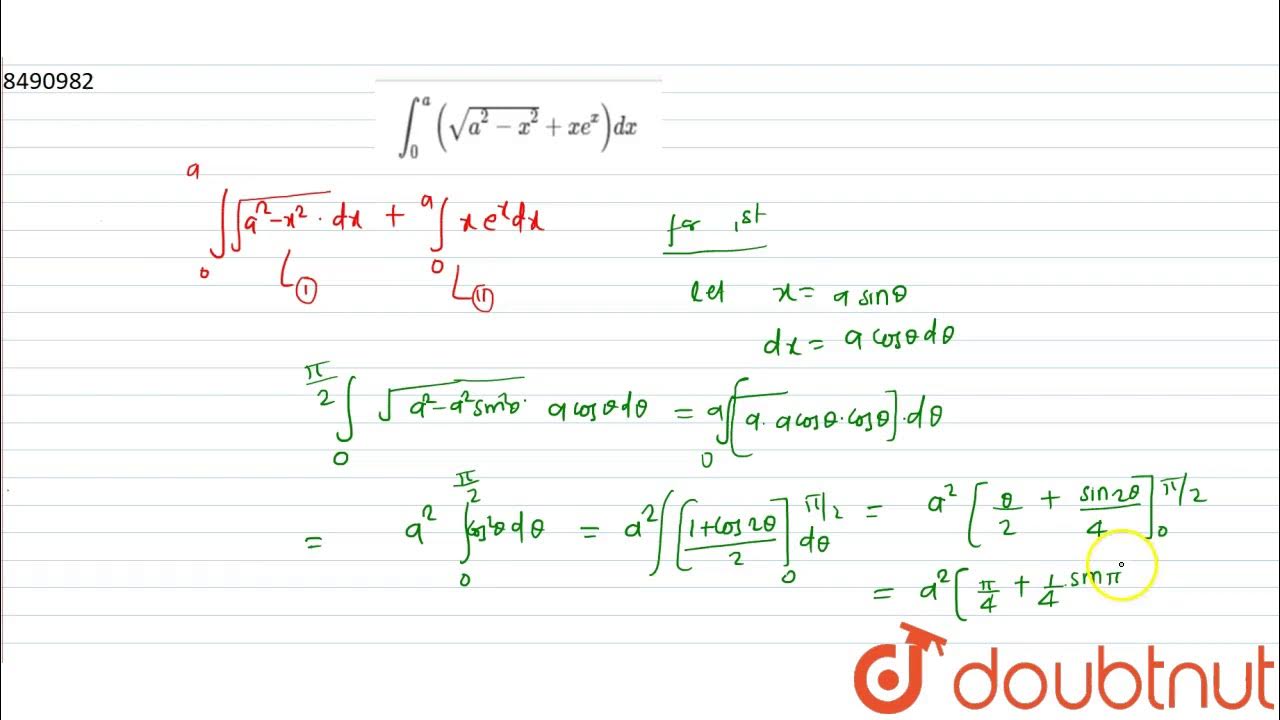 8490982
∫₀ᵃ (√(a² − x²) + xeˣ)dx
a ∫₀ √(a² − x²) · dx + a ∫₀ x eˣ dx
① ⑪
for 1st
let x = a sinθ
dx = a cosθ dθ
π/2 ∫₀ √(a² − a² sin²θ) · a cosθ dθ = a ∫₀ [a · a cosθ · cosθ] · dθ
= a² ∫₀^(π/2) cos²θ dθ = a² ∫ [(1 + cos 2θ)/2]₀^(π/2) dθ = a² [θ/2 + sin 2θ/4]₀^(π/2)
= a² [π/4 + 1/4 · sin π
doubtnut